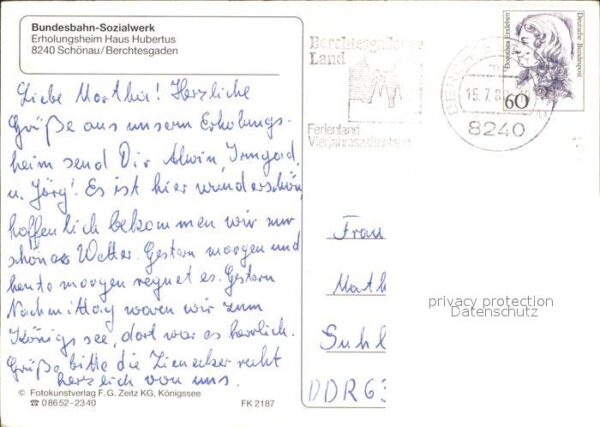 Bundesbahn-Sozialwerk
Erholungsheim Haus Hubertus
8240 Schönau/Berchtesgaden
Liebe Martha! Herzliche
Grüße aus unserm Erholungs-
heim send Dir Alwin, Irmgard
u. Jörg! Es ist hier wunderschön,
hoffentlich bekommen wir nur
schönes Wetter. Gestern morgen und
heute morgen regnet es. Gestern
Nachmittag waren wir zum
Königssee, dort war es herrlich.
Grüße bitte die Zienecker recht
herzlich von uns.
© Fotokunstverlag F. G. Zeitz KG, Königssee
☎ 08652-2340
FK 2187
Berchtesgadener
Land
Ferienland
Vierjahreszeiten
15.7.8
8240
60
Deutsche Bundespost
Frau
Marth
Suhl
DDR 63
privacy protection
Datenschutz